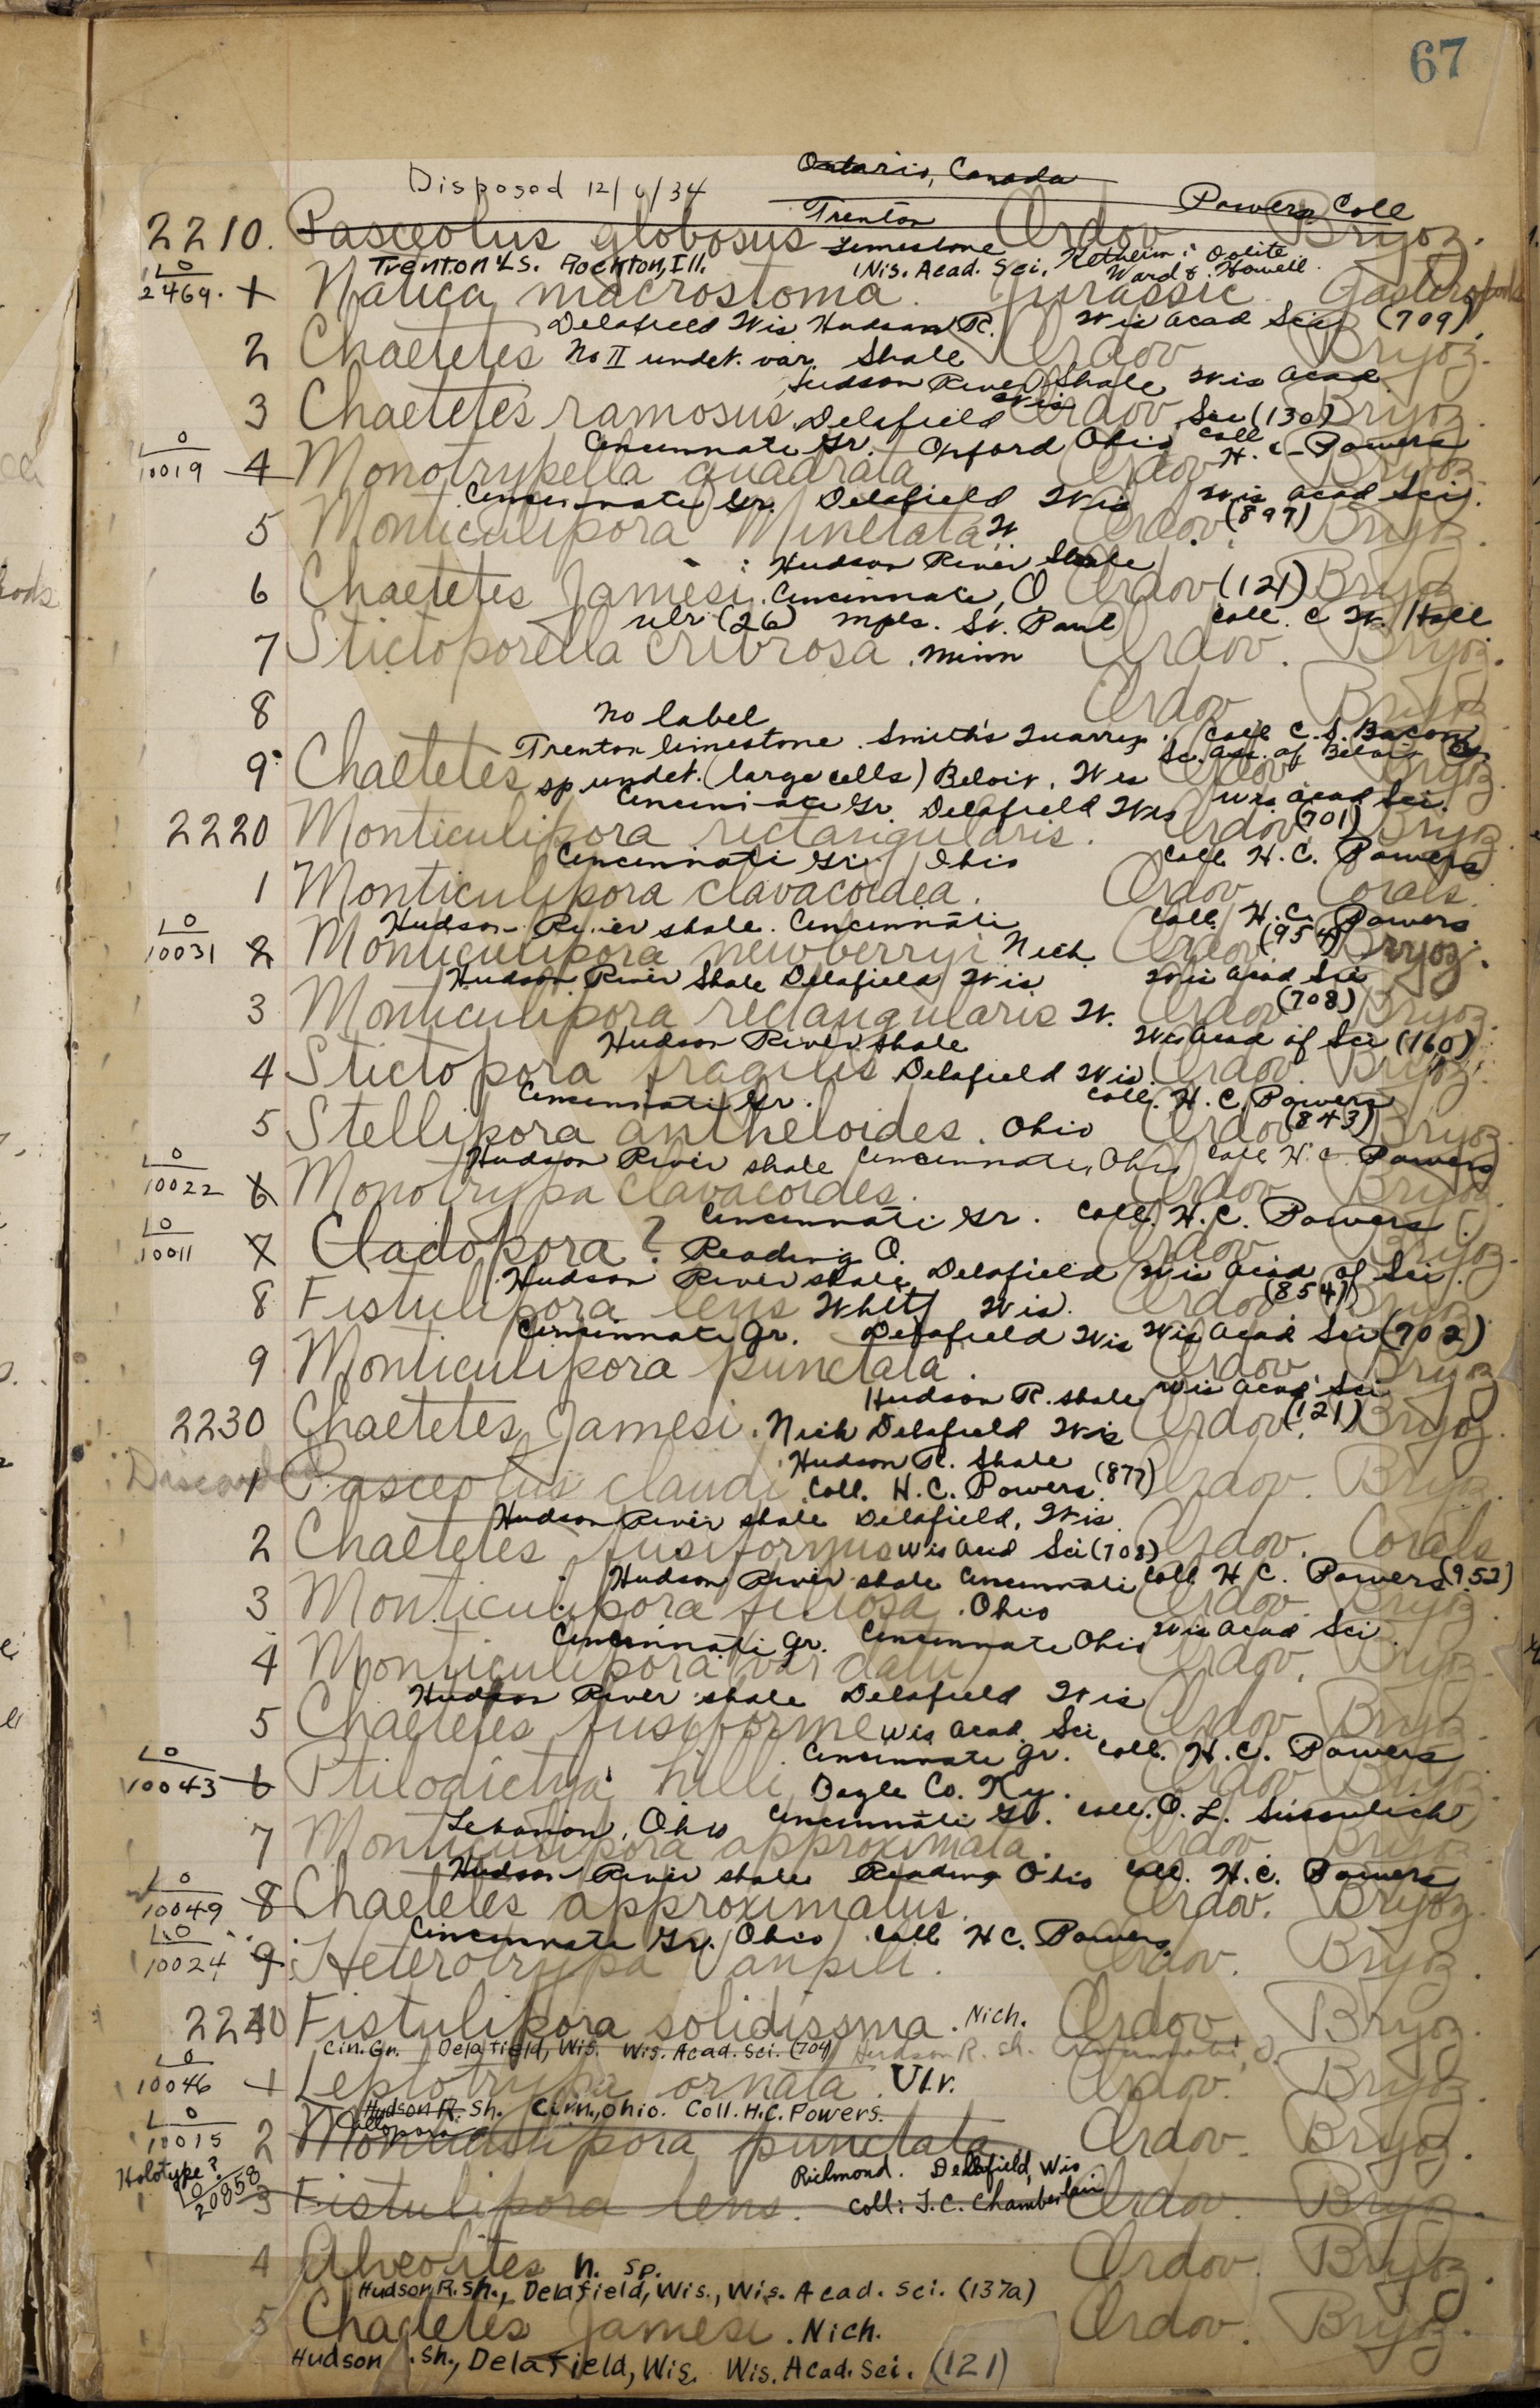 67
Disposed 12/6/34 Ontario, Canada
Trenton Powers Coll
2210. Pasceolus globosus Limestone Ordov Bryoz.
Trenton Ls. Rockton, Ill. Wis. Acad. Sci. Oolite
LO Ward & Howell
2469. 1 Natica macrostoma. Jurassic
Delafield Wis Hudson R. Wis Acad Sci (709)
2 Chaetetes No II undet. var. Shale Ordov Bryoz.
Hudson River Shale Wis Acad
3 Chaetetes ramosus Delafield Wis Ordov Sci (130) Bryoz
LO Cincinnati Gr. Oxford Ohio Coll H. C. Powers
10019 4 Monotrypella quadrata Ordov Bryoz
Cincinnati Gr. Delafield Wis Wis Acad Sci.
5 Monticulipora W. Ordov. (897) Bryoz.
Hudson River Shale
6 Chaetetes Jamesi. Cincinnati, O Ordov (121) Bryoz
Ulr (26) Mpls. St. Paul Coll. C. W. Hall
7 Stictoporella cribrosa. Minn Ordov. Bryoz.
8 No label Ordov Bryoz
Trenton limestone. Smith's Quarry. Coll C. S. Bacon
Sc. Ass. of Beloit
9 Chaetetes sp undet. (large cells) Beloit, Wis Ordov Bryoz
Cincinnati Gr. Delafield Wis Wis Acad Sci.
2220 Monticulipora rectangularis. Ordov (701) Bryoz
Cincinnati Gr. Ohio Coll H. C. Powers
1 Monticulipora clavacoidea. Ordov Corals.
LO Hudson River shale. Cincinnati Coll. H. C. Powers
10031 2 Monticulipora newberryi Nich. Ordov (954) Bryoz.
Hudson River Shale Delafield Wis Wis Acad Sci
3 Monticulipora rectangularis W. Ordov (708) Bryoz.
Hudson River shale Wis Acad of Sci (160)
4 Stictopora fragilis Delafield Wis. Ordov. Bryoz.
Cincinnati Gr. Coll. H. C. Powers
5 Stellipora antheloides. Ohio Ordov (843) Bryoz
LO Hudson River shale Cincinnati, Ohio Coll H. C. Powers
10022 6 Monotrypa clavacoides. Ordov Bryoz
LO Cincinnati Gr. Coll. H. C. Powers
10011 7 Cladopora? Reading O. Ordov Bryoz.
Hudson River shale, Delafield Wis Acad of Sci.
8 Fistulipora lens Whitf Wis. Ordov (854) Bryoz
Cincinnati Gr. Delafield Wis Wis Acad Sci (702)
9 Monticulipora punctata. Ordov Bryoz
Hudson R. shale Wis Acad Sci
2230 Chaetetes Jamesi. Nich Delafield Wis Ordov. (121) Bryoz.
Hudson R. Shale
Discard 1 Pasceolus claudi Coll. H. C. Powers. (877) Ordov. Bryoz
Hudson River shale Delafield, Wis
2 Chaetetes fusiformis Wis Acad Sci (708) Ordov. Corals
Hudson River shale Cincinnati Coll H C. Powers (952)
3 Monticulipora filiosa. Ohio Ordov. Bryoz.
Cincinnati Gr. Cincinnati Ohio Wis Acad Sci.
4 Monticulipora Ordov. Bryoz
Hudson River shale Delafield Wis
5 Chaetetes fusiforme Wis Acad. Sci Ordov Bryoz
LO Cincinnati Gr. Coll. H. C. Powers
10043 6 Ptilodictya hilli Boyle Co. Ky. Ordov Bryoz
Lebanon, Ohio Cincinnati Gr. Coll. O. L.
7 Monticulipora approximata. Ordov. Bryoz
LO Hudson River shale Reading Ohio Coll. H. C. Powers
10049 8 Chaetetes approximatus. Ordov. Bryoz.
LO Cincinnati Gr. Ohio Coll H C. Powers
10024 9 Heterotrypa Ordov. Bryoz.
2240 Fistulipora solidissma. Nich. Ordov Bryoz.
LO Cin. Gr. Delafield, Wis. Wis. Acad. Sci. (704) Hudson R. Sh. Cincinnati, O.
10046 1 Leptotrypa ornata. Ulr. Ordov. Bryoz
LO Hudson R. Sh. Cinn., Ohio. Coll. H.C. Powers.
Callopora
10015 2 Monticulipora punctata Ordov. Bryoz.
Holotype? Richmond. Delafield, Wis
LO
20858 3 Fistulipora lens. Coll: T. C. Chamberlain Ordov. Bryoz.
4 Alveolites n. sp. Ordov. Bryoz.
Hudson R. Sh., Delafield, Wis., Wis. Acad. Sci. (137a)
5 Chaetetes Jamesi. Nich. Ordov. Bryoz.
Hudson . Sh., Delafield, Wis. Wis. Acad. Sci. (121)